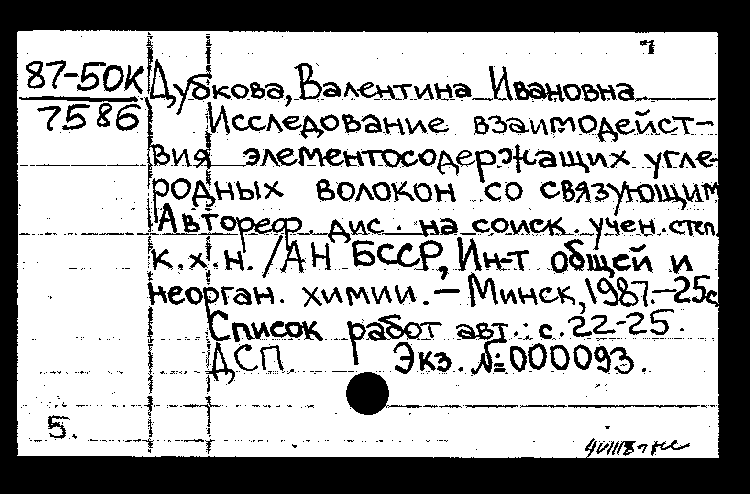 87-50К Дубкова, Валентина Ивановна
7586 Исследование взаимодейст-
вия элементосодержащих угле-
родных волокон со связующим
Автореф. дис. на соиск. учен. степ.
к.х.н. /АН БССР, Ин-т общей и
неорган. химии. – Минск, 1987. – 25с
Список работ авт.: с. 22-25.
ДСП. Экз. №000093.
5.